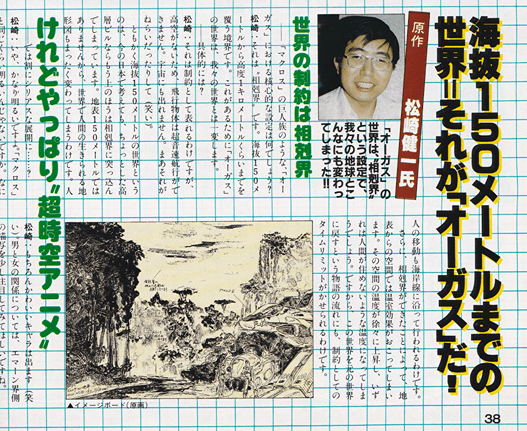 海抜150メートルまでの
世界=それが「オーガス」だ!
原作
松崎健一氏
「オーガス」の
世界は、“相剋界”
という設定で、
我々の地球とこ
んなにも変わっ
てしまった!!
人の移動も海岸線に沿って行われるわけです。
さらに、相剋界ができたことによって、地
表からの空間では温室効果がおこってしまい
ます。その空間の温度が徐々に上昇し、いず
れは人間が住めないような温度になってしま
うでしょう。ですから、この世界を元の世界
に戻すという物語の流れにも、制約としての
タイムリミットがかせられるわけです。
世界の制約は相剋界
──『マクロス』の巨人族のような、『オー
ガス』における核心的な設定は何でしょう?
松崎:それは〝相剋界〟です。海抜150メ
ートルから高度1キロメートルくらいまでを
覆う境界です。これがあるために『オーガス』
世界は、我々の世界とは一変します。
──具体的には?
松崎:それは制約として表れるわけですが、
高空がないため、飛行物体は超音速航行がで
きません。宇宙へも出れません。まあそれが
ねらいだったりして(笑)。
ともかく海抜150メートルの世界という
のは、今の日本で考えても、ちょっとした高
層ビルならもう上のほうは相剋界に突っ込ん
でしまいます。地表150メートルでは
ありませんから、世界で人間の生きられる地
形図もまったく変わってしまうわけです。人
けれどやっぱり“超時空アニメ”
──では割にシリアスな展開に…?
松崎:いや、かなり明るいですよ。『マクロス』
松崎:もちろんかわいいキャラは出ます(笑
い)。男と女の関係については、エマーン界側
▲イメージボード(原画)
38